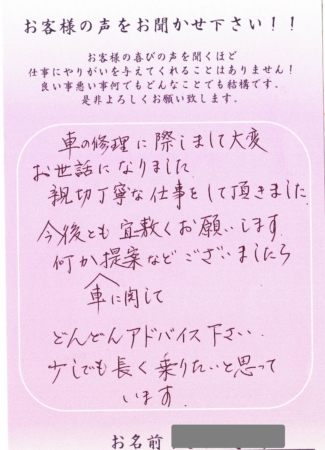 お客様の声をお聞かせ下さい！！
お客様の喜びの声を聞くほど
仕事にやりがいを与えてくれることはありません！
良い事悪い事何でもどんなことでも結構です．
是非よろしくお願い致します．
車の修理に際しまして大変
お世話になりました
親切丁寧な仕事をして頂きました
今後とも宜敷くお願いします
何か提案などございましたら
車に関して
どんどんアドバイス下さい．
少しでも長く乗りたいと思って
います．
お名前